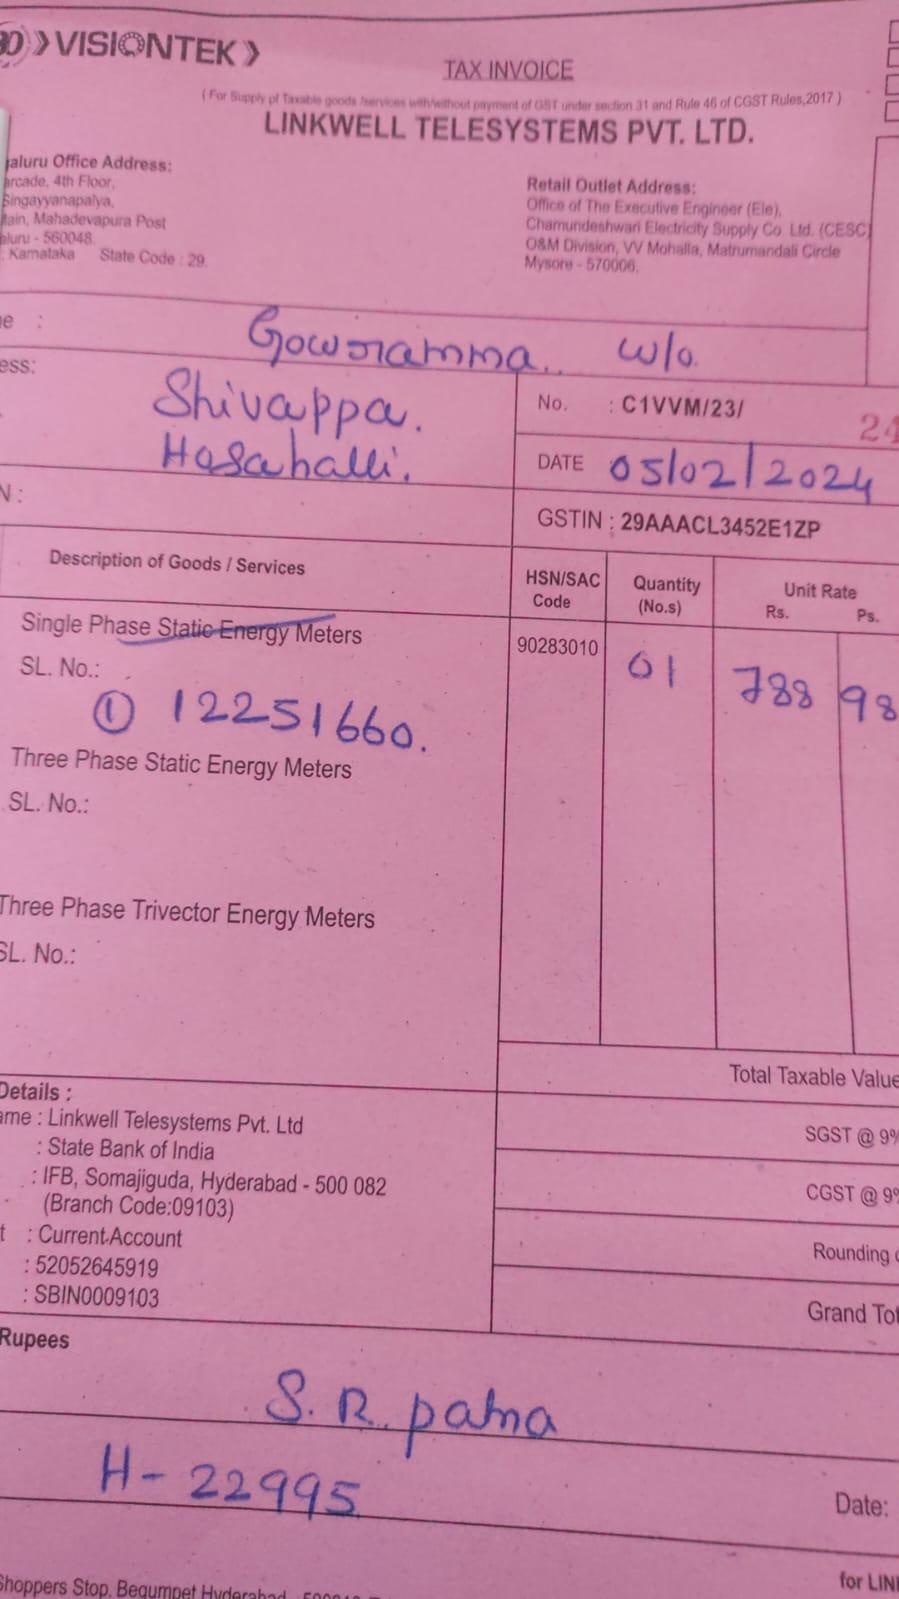 VISIONTEK
TAX INVOICE
( For Supply of Taxable goods /services with/without payment of GST under section 31 and Rule 46 of CGST Rules,2017 )
LINKWELL TELESYSTEMS PVT. LTD.
aluru Office Address:
arcade, 4th Floor,
Singayyanapalya,
tain, Mahadevapura Post
aluru - 560048.
: Karnataka State Code : 29.
Retail Outlet Address:
Office of The Executive Engineer (Ele),
Chamundeshwari Electricity Supply Co. Ltd. (CESC)
O&M Division, VV Mohalla, Matrumandali Circle
Mysore - 570006.
e : Gowramma. w/o.
ess: Shivappa.
Hosahalli.
No. : C1VVM/23/ 24
DATE 05/02/2024
N :
GSTIN : 29AAACL3452E1ZP
Description of Goods / Services
HSN/SAC Code
Quantity (No.s)
Unit Rate
Rs. Ps.
Single Phase Static Energy Meters
90283010 01 788 98
SL. No.:
① 12251660.
Three Phase Static Energy Meters
SL. No.:
Three Phase Trivector Energy Meters
SL. No.:
Total Taxable Value
SGST @ 9%
CGST @ 9%
Rounding
Grand Tot
Details :
ame : Linkwell Telesystems Pvt. Ltd
: State Bank of India
: IFB, Somajiguda, Hyderabad - 500 082
(Branch Code:09103)
t : Current Account
: 52052645919
: SBIN0009103
Rupees
S. R. patna
H- 22995
Date:
for LIN
Shoppers Stop, Begumpet Hyderabad